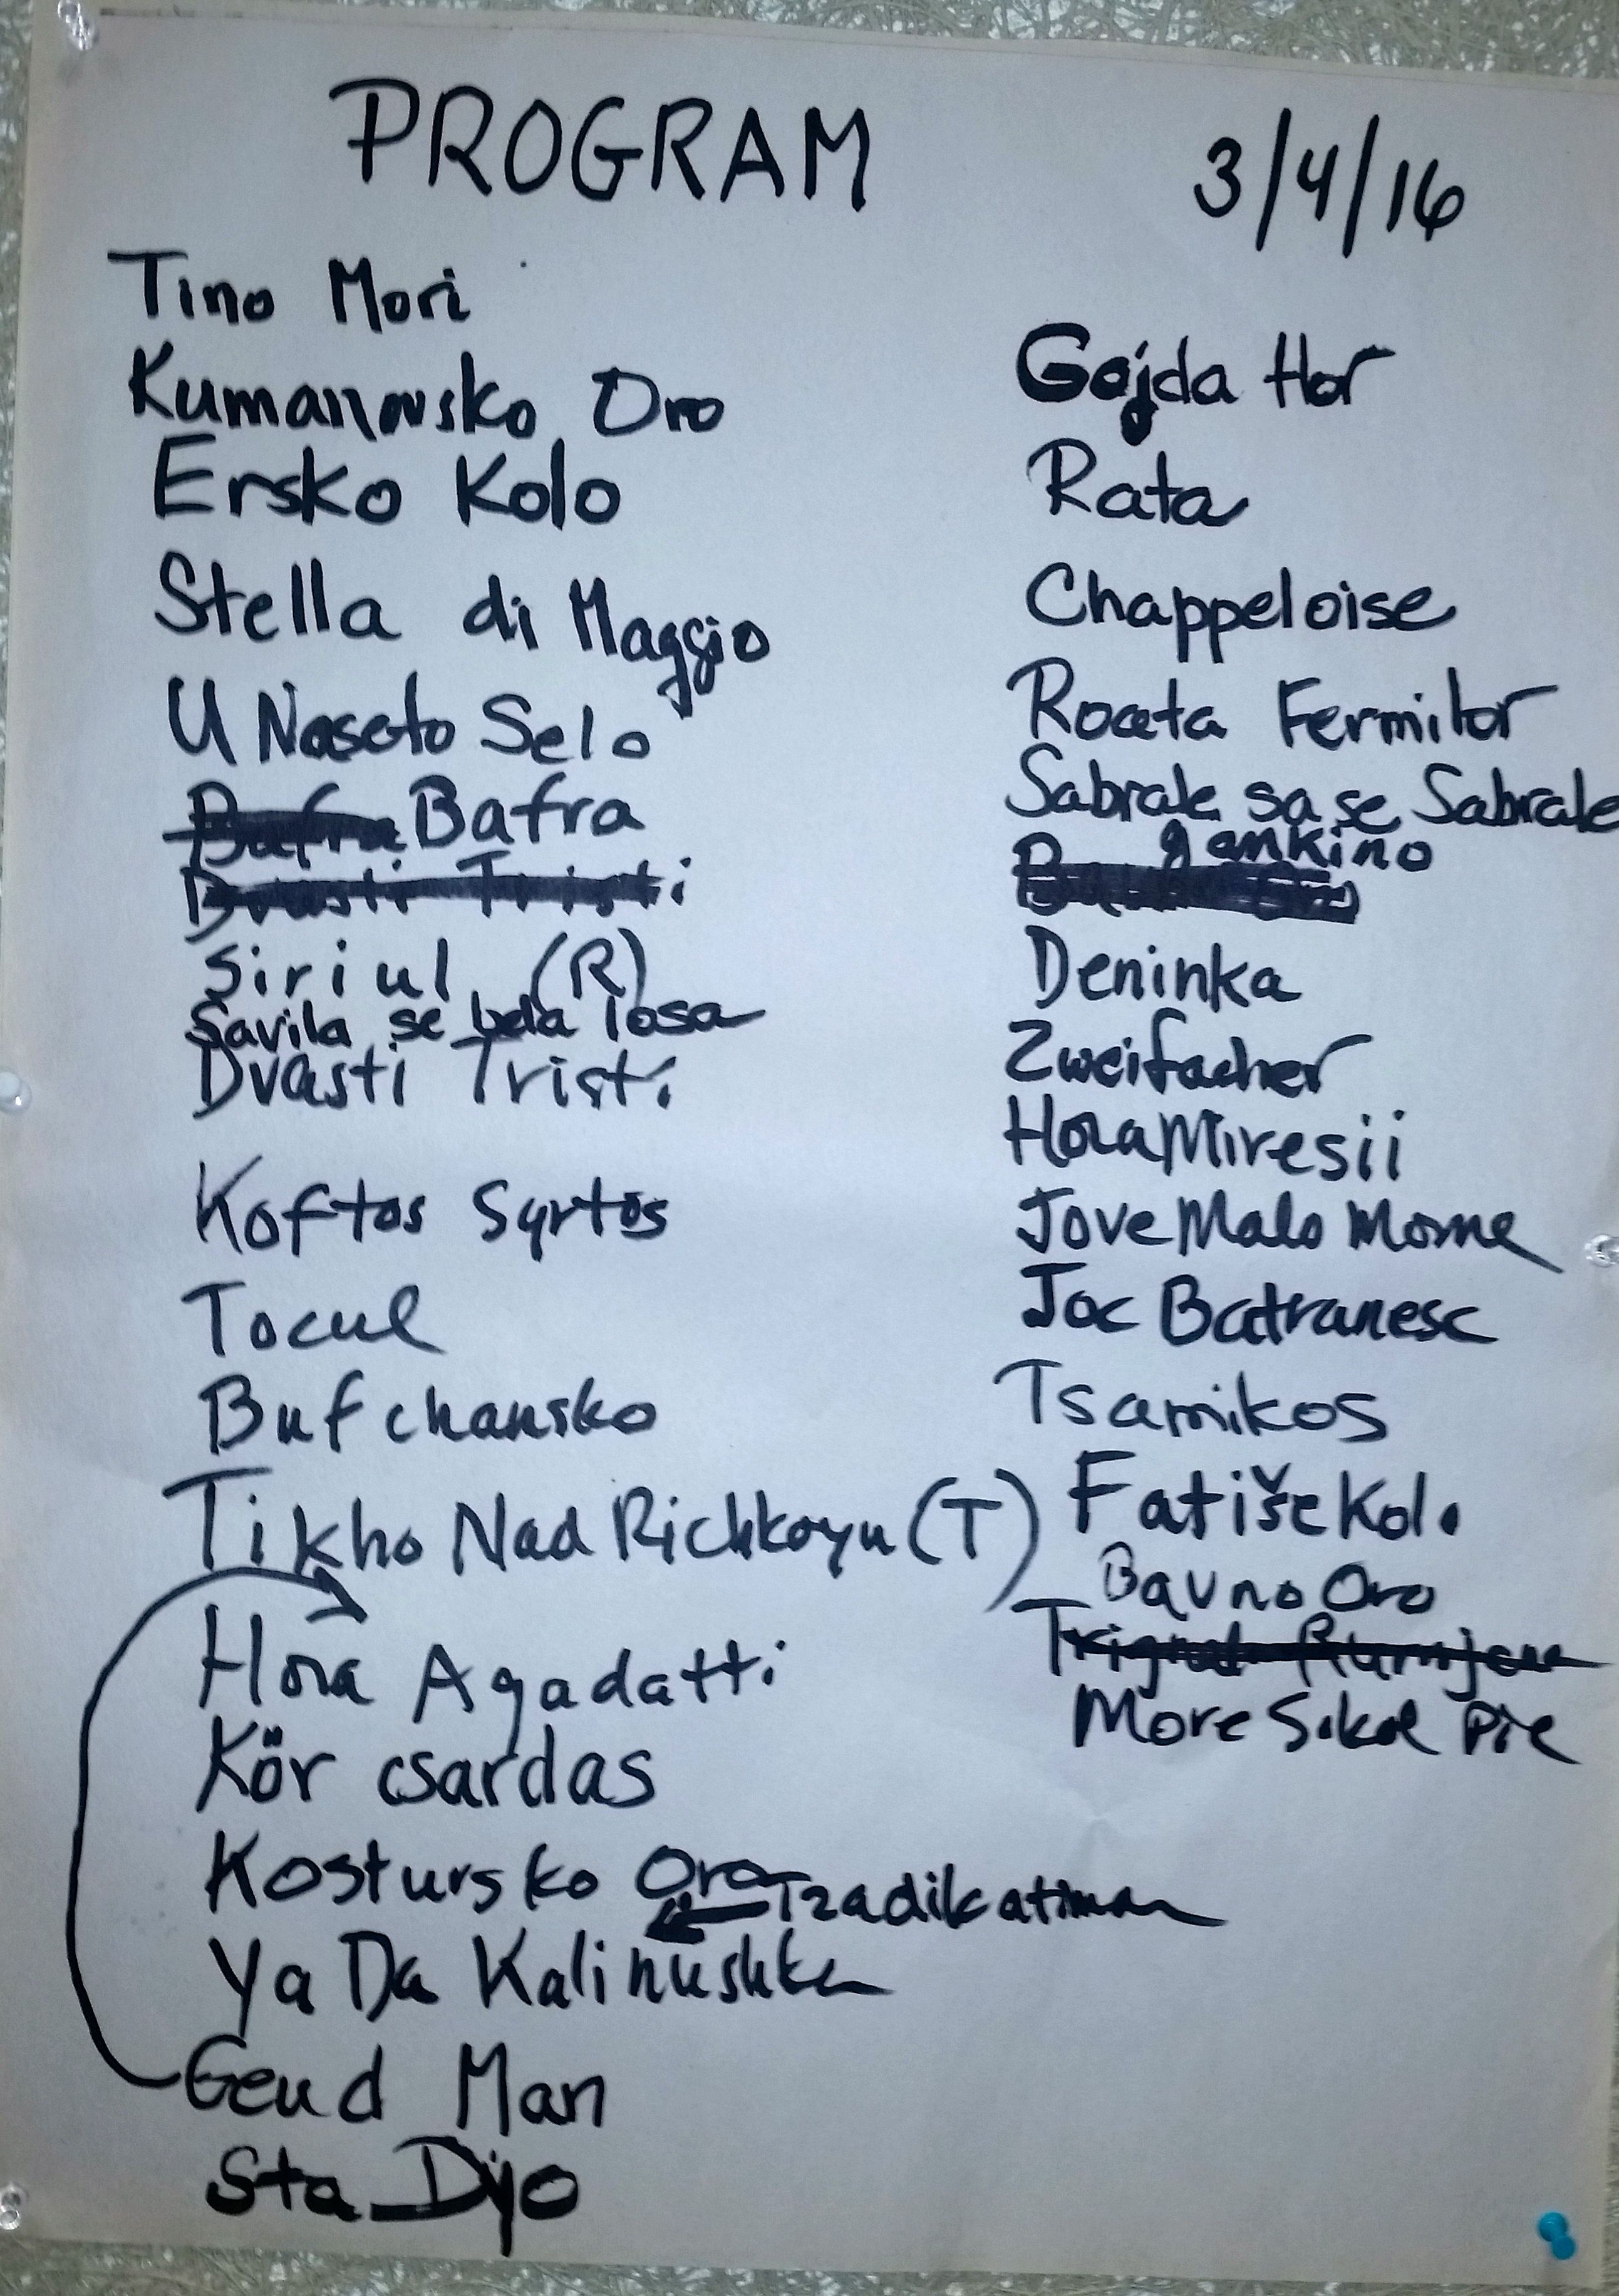 PROGRAM
3/4/16
Tino Mori
Kumanovsko Oro
Ersko Kolo
Stella di Maggio
U Naseto Selo
Bafra Bafra
Dvasti Tristi
Siriul (R)
Savila se bela losa
Dvasti Tristi
Koftos Syrtos
Tocul
Bufchansko
Tikho Nad Richkoyu (T)
Hora Agadatti
Kör csardas
Kostursko Oro
Tzadik atimar
Ya Da Kalinushka
Geud Man
Sta Dyo
Gajda Hor
Rata
Chappeloise
Roata Fermilor
Sabrale sa se Sabrale
gankino
Deninka
Zweifacher
Hora Miresii
Jove Malo Mome
Joc Batranesc
Tsamikos
Fatiše Kolo
Bavno Oro
More Sokol Pie